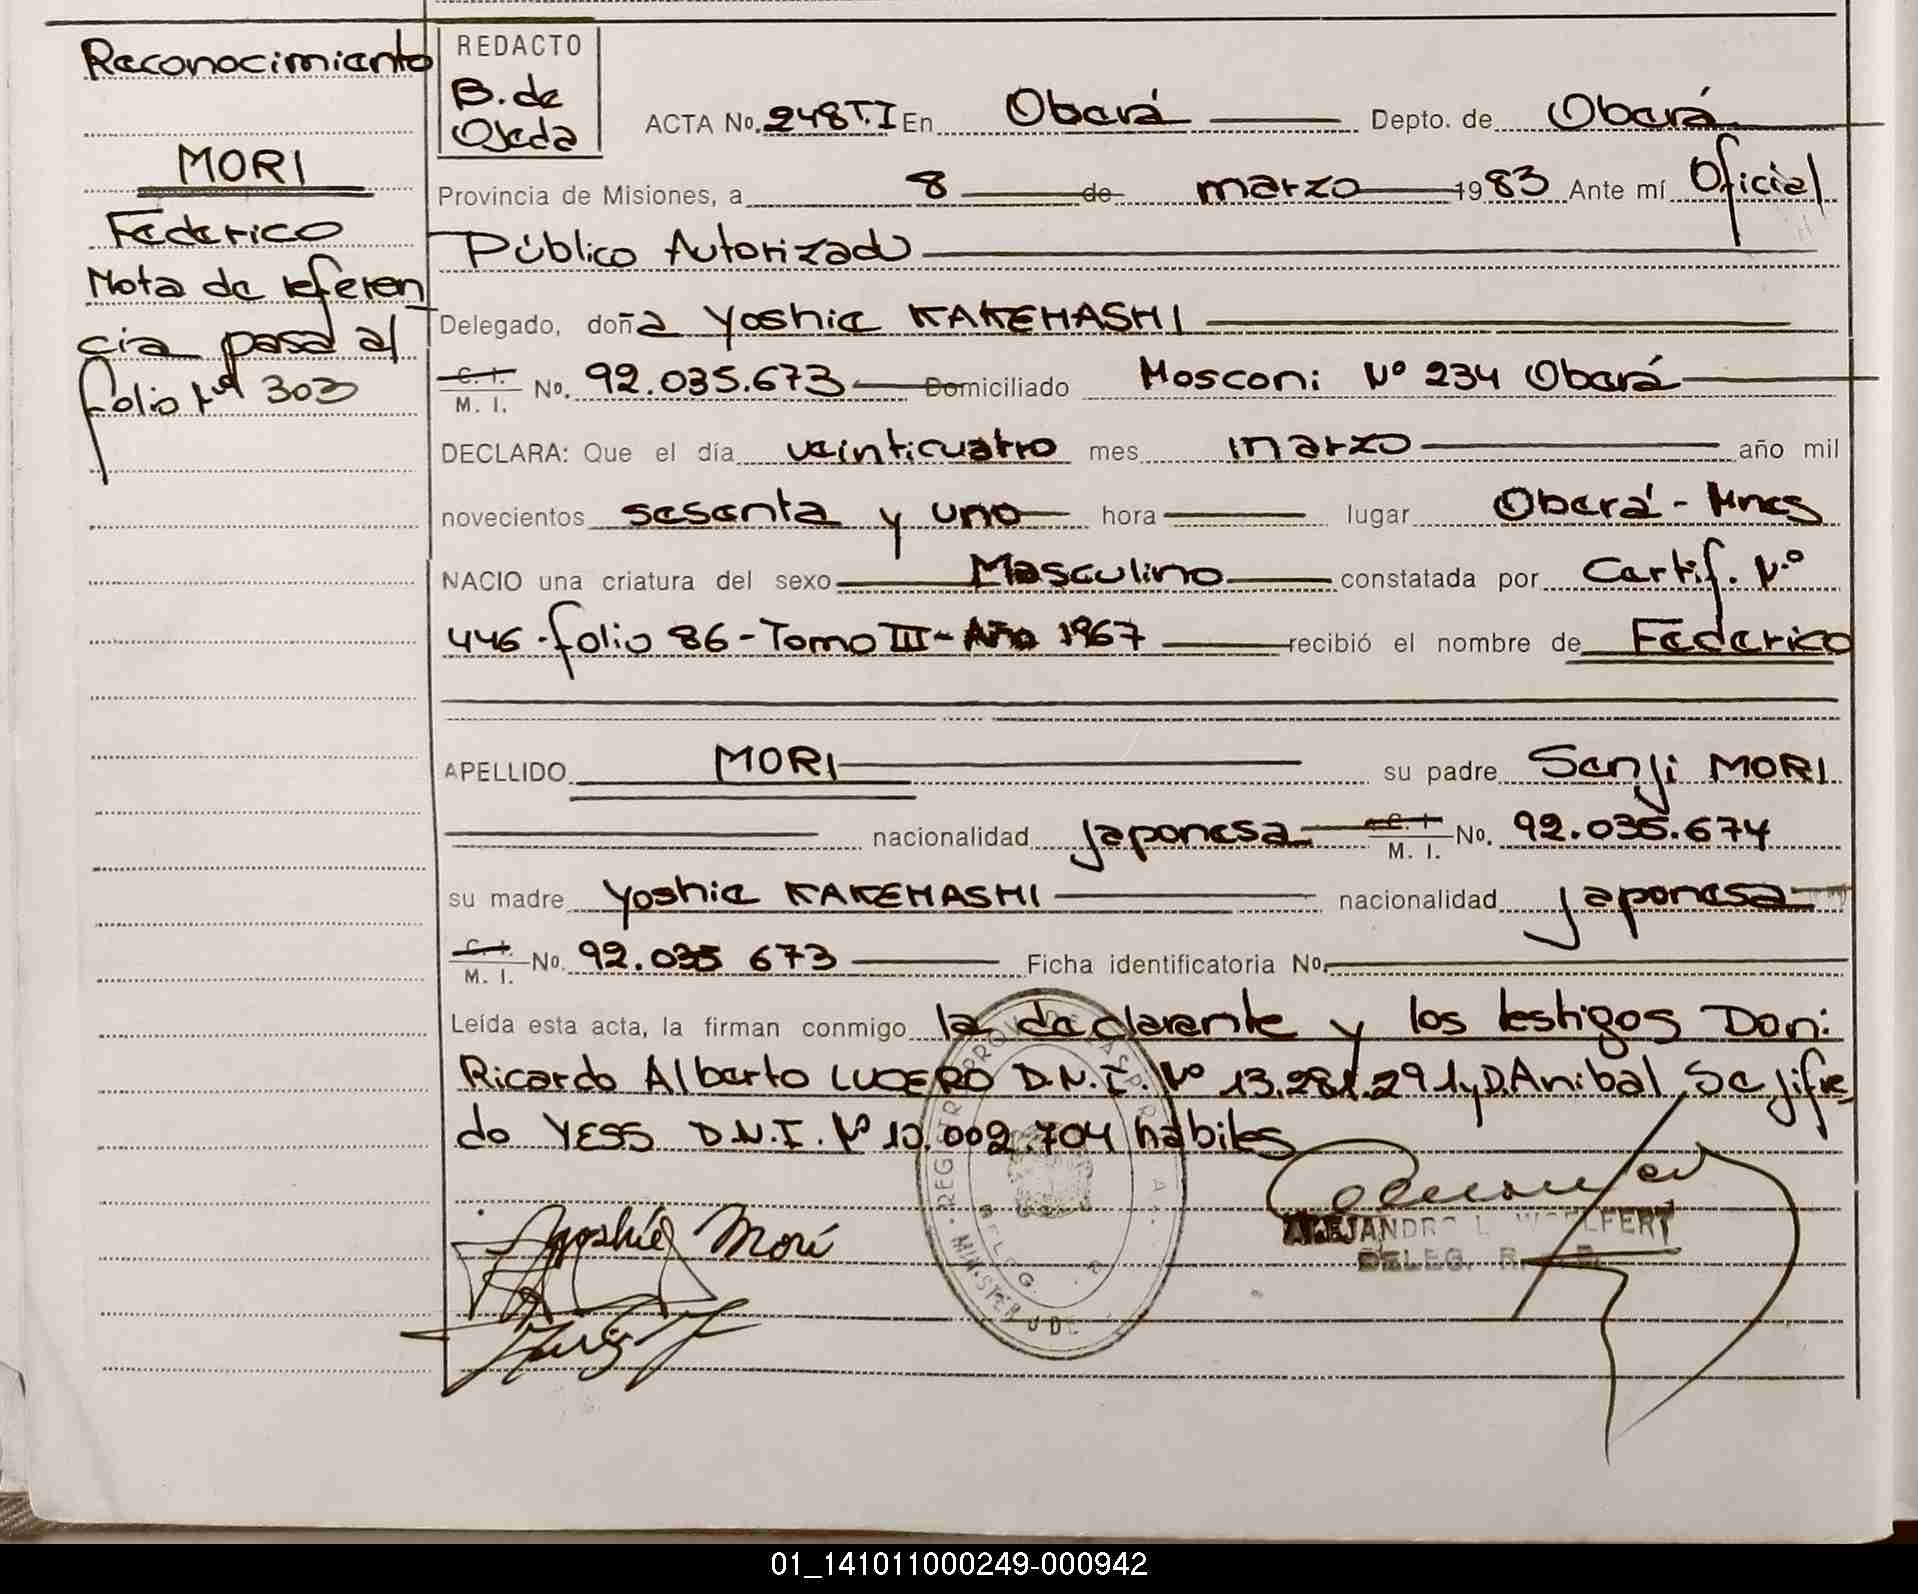 Reconocimiento
MORI
Federico
Nota de referen
cia pasa al
folio Nº 303
REDACTO
B. de
Ojeda
ACTA No. 248 T.I En Oberá Depto. de Oberá
Provincia de Misiones, a 8 de marzo 1983 Ante mí Oficial
Público Autorizado
Delegado, doña Yoshie KAKEHASHI
C. I. M. I. No. 92.035.673 Domiciliado Mosconi Nº 234 Oberá
DECLARA: Que el día veinticuatro mes marzo año mil
novecientos sesenta y uno hora lugar Oberá - Mnes
NACIO una criatura del sexo Masculino constatada por Certif. N.º
446 - folio 86 - Tomo III - Año 1967 recibió el nombre de Federico
APELLIDO MORI su padre Senji MORI
nacionalidad japonesa C. I. M. I. No. 92.035.674
su madre Yoshie KAKEHASHI nacionalidad japonesa
C. I. M. I. No. 92.035 673 Ficha identificatoria No.
Leída esta acta, la firman conmigo la declarante y los testigos Don:
Ricardo Alberto LUCERO D.N.I. Nº 13.281.291 y D. Anibal Sejifre
do YESS D.N.I. Nº 10.002.704 hábiles
Yoshie Mori
ALEJANDRO L. WOELFERT
DELEG. R.
REGISTR PROV. DE LAS P
DELEG.
MINISTERIO DE
01_141011000249-000942